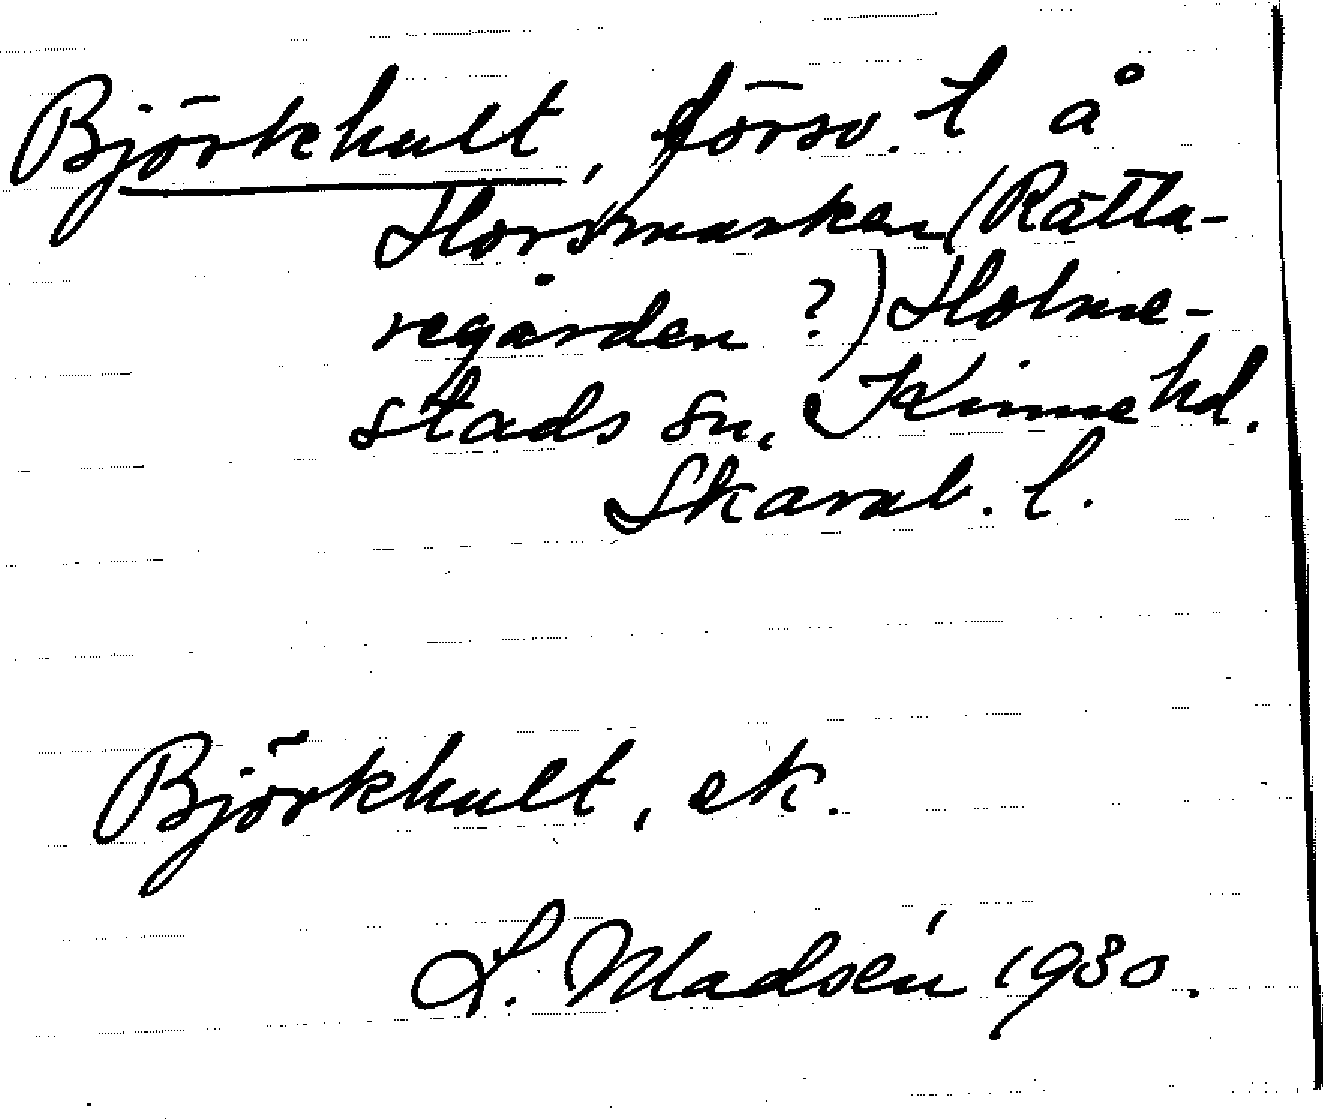 Björkhult, försv. t å
Horsmarken (Rätta-
regården ?) Holme-
stads sn, Kinne hd.
Skarab. l.
Björkhult, ek.
L. Madsén 1930.